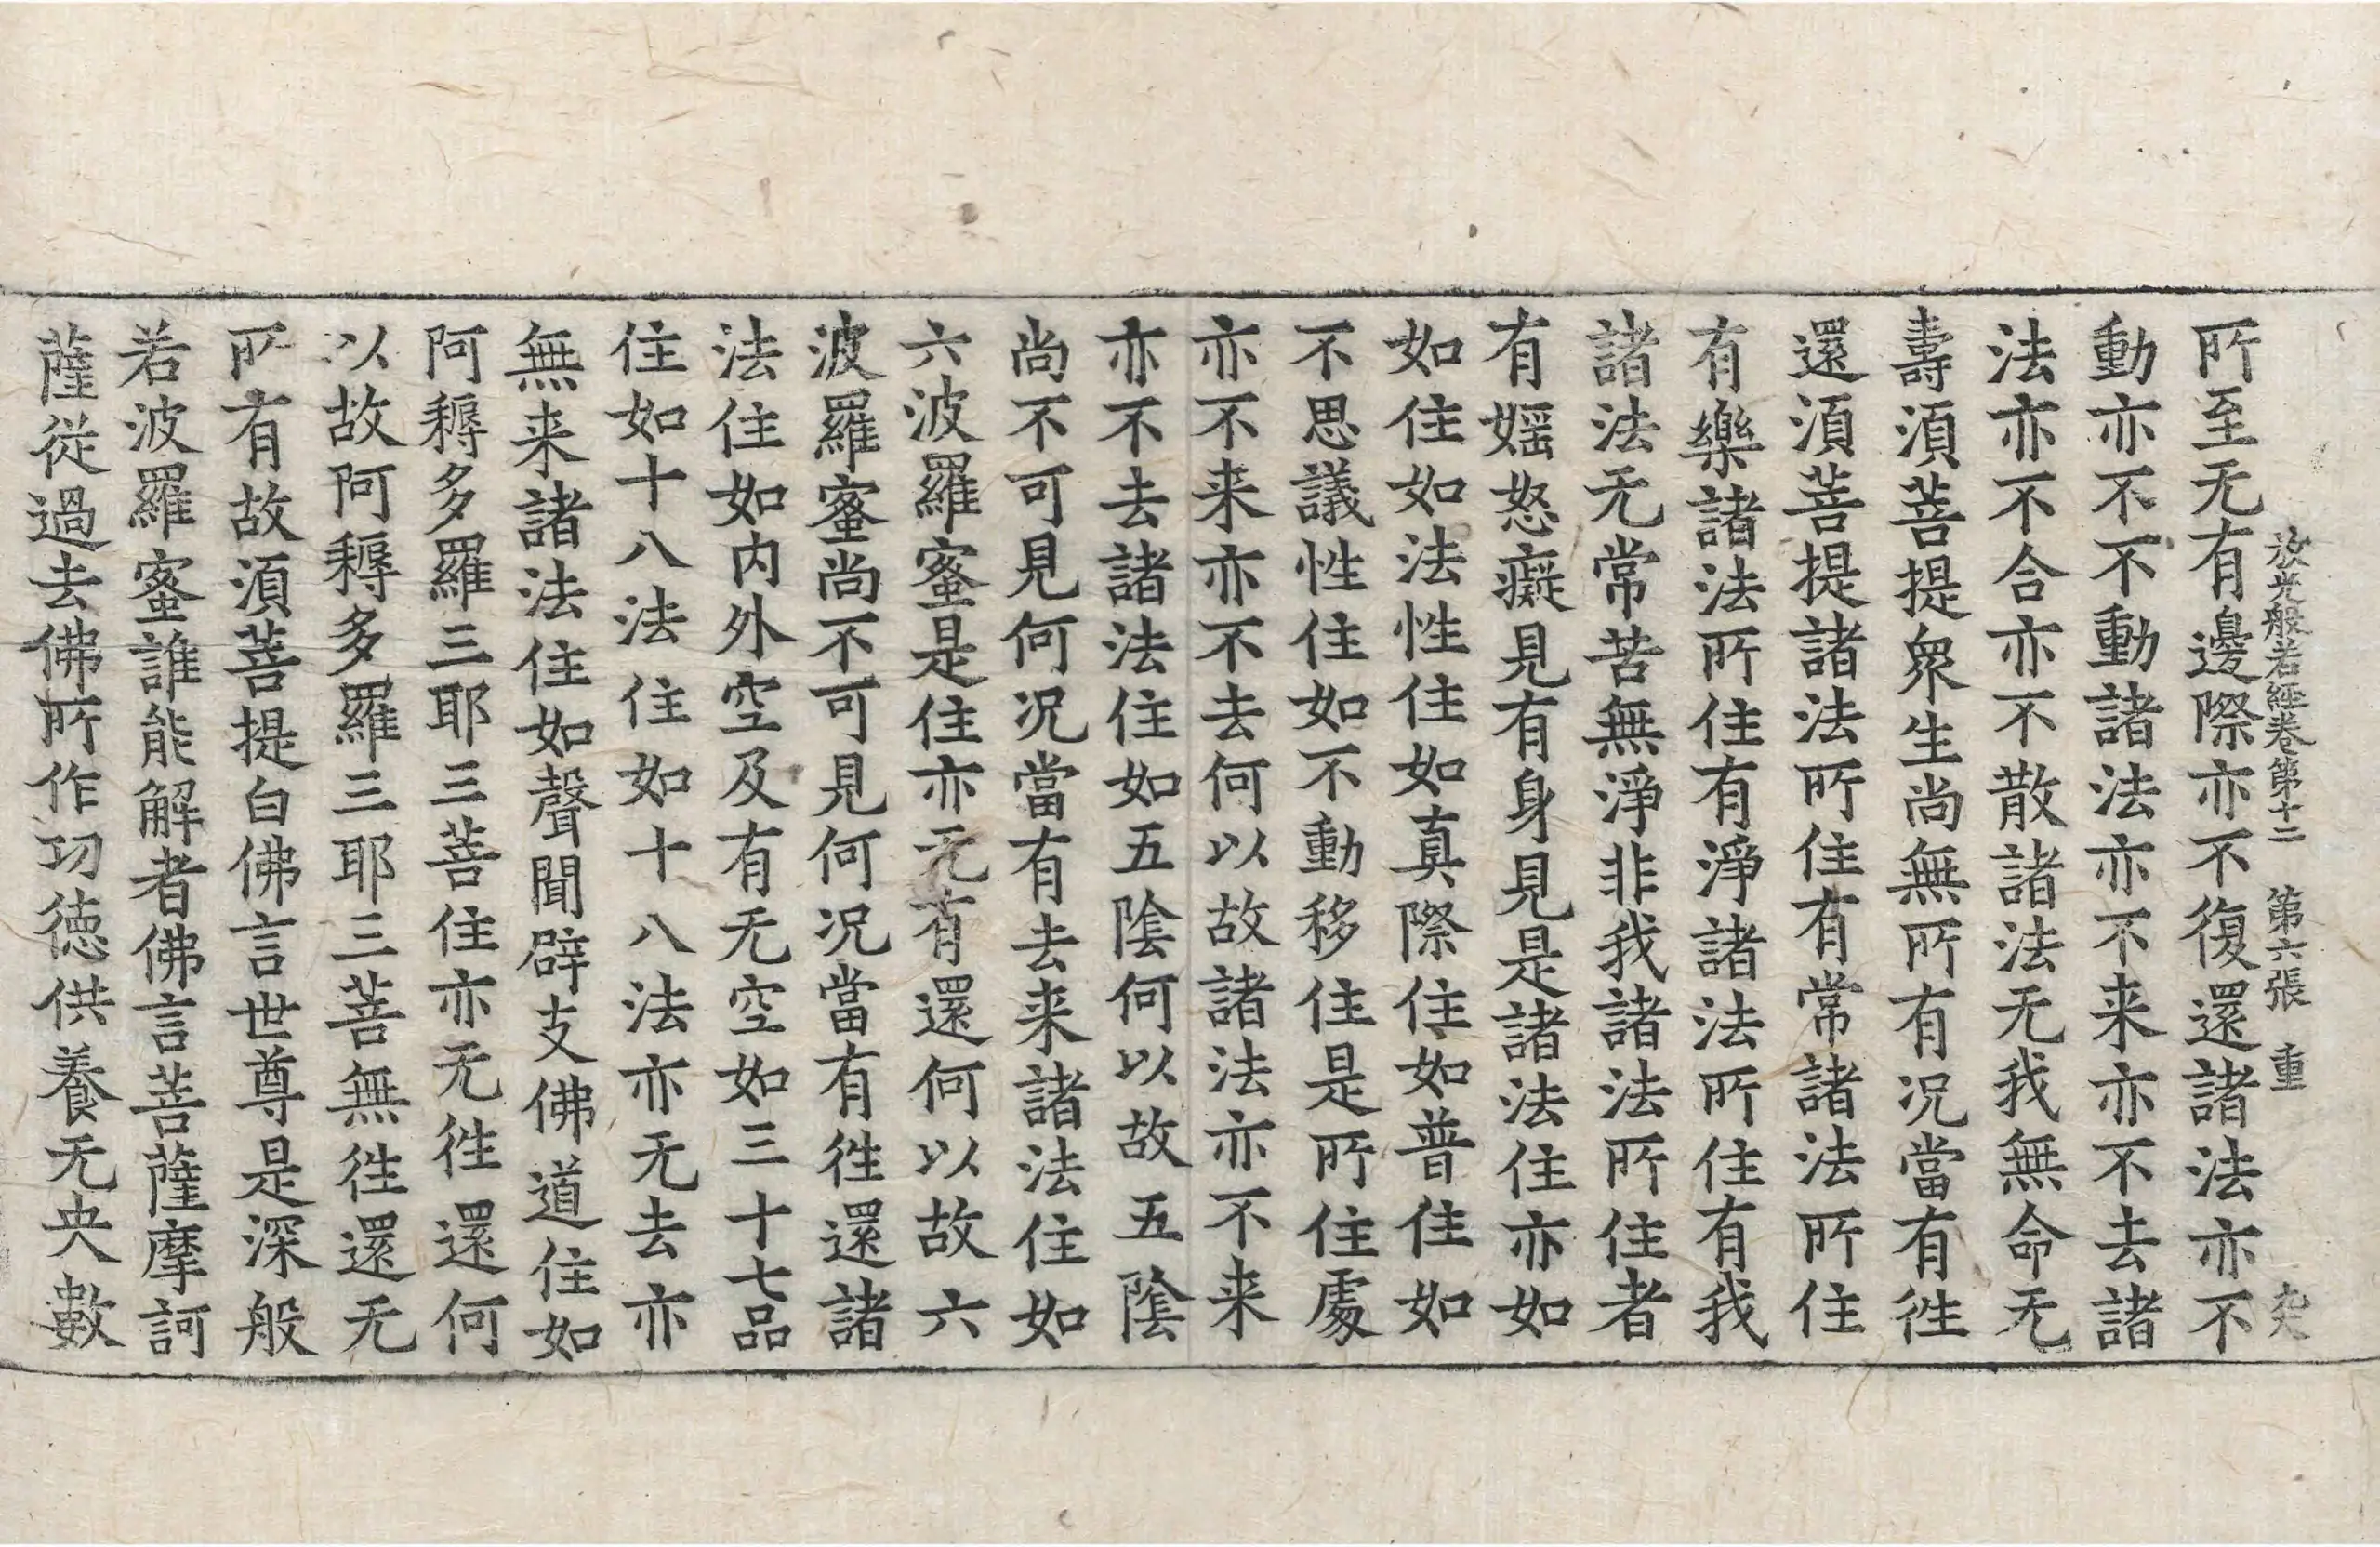 放光般若經卷第十二 第六張 重
所至无有邊際亦不復還諸法亦不
動亦不不動諸法亦不来亦不去諸
法亦不合亦不散諸法无我無命无
壽湏菩提衆生尚無所有况當有徃
還湏菩提諸法所住有常諸法所住
有樂諸法所住有淨諸法所住有我
諸法无常苦無淨非我諸法所住者
有婬怒癡見有身見是諸法住亦如
如住如法性住如真際住如普住如
不思議性住如不動移住是所住處
亦不来亦不去何以故諸法亦不来
亦不去諸法住如五陰何以故五陰
尚不可見何况當有去来諸法住如
六波羅蜜是住亦无有還何以故六
波羅蜜尚不可見何况當有徃還諸
法住如内外空及有无空如三十七品
住如十八法住如十八法亦无去亦
無来諸法住如聲聞辟支佛道住如
阿耨多羅三耶三菩住亦无徃還何
以故阿耨多羅三耶三菩無徃還无
所有故湏菩提白佛言世尊是深般
若波羅蜜誰能解者佛言菩薩摩訶
薩從過去佛所作功德供養无央數